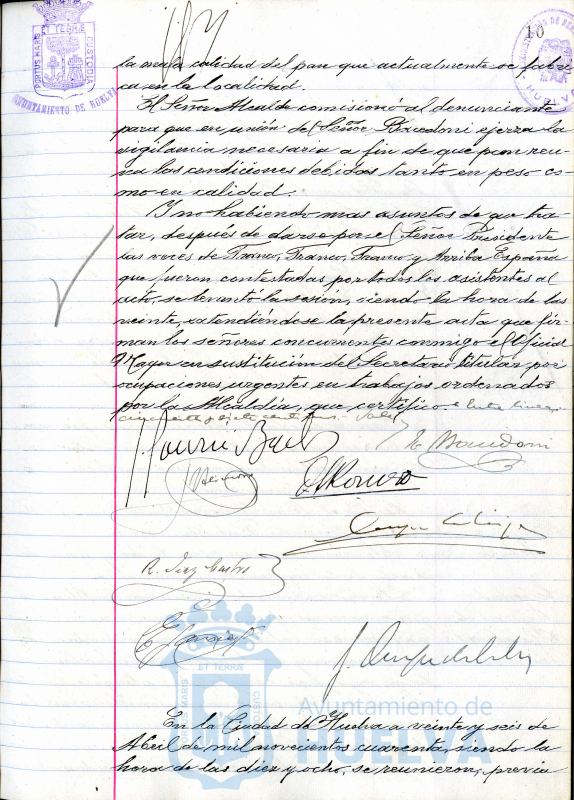 10
PORTUS MARIS ET TERRÆ CUSTODIA
AYUNTAMIENTO DE HUELVA
la mala calidad del pan que actualmente se fabri-
ca en la localidad.
El Señor Alcalde comisionó al denunciante
para que en unión del Señor ejerza la
vigilancia necesaria a fin de que pan reu-
na las condiciones debidas tanto en peso co-
mo en calidad.
Y no habiendo mas asuntos de que tra-
tar, después de darse por el Señor Presidente
las voces de Franco, Franco, Franco y Arriba España
que fueron contestadas por todos los asistentes al
acto, se levantó la sesión, siendo la hora de las
veinte, extendiéndose la presente acta que fir-
man los señores concurrentes conmigo el Oficial
Mayor en sustitución del Secretario titular por
ocupaciones urgentes en trabajos ordenados
por la Alcaldía, que certifico.
Romero
R. Castro
ET TERRÆ
PORTUS MARIS
CUSTODIA
Ayuntamiento de
HUELVA
En la Ciudad de Huelva a veinte y seis de
Abril de mil novecientos cuarenta, siendo la
hora de las diez y ocho, se reunieron, previa